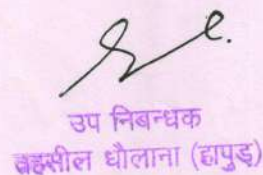 उप निबन्धक
तहसील धौलाना (हापुड़)